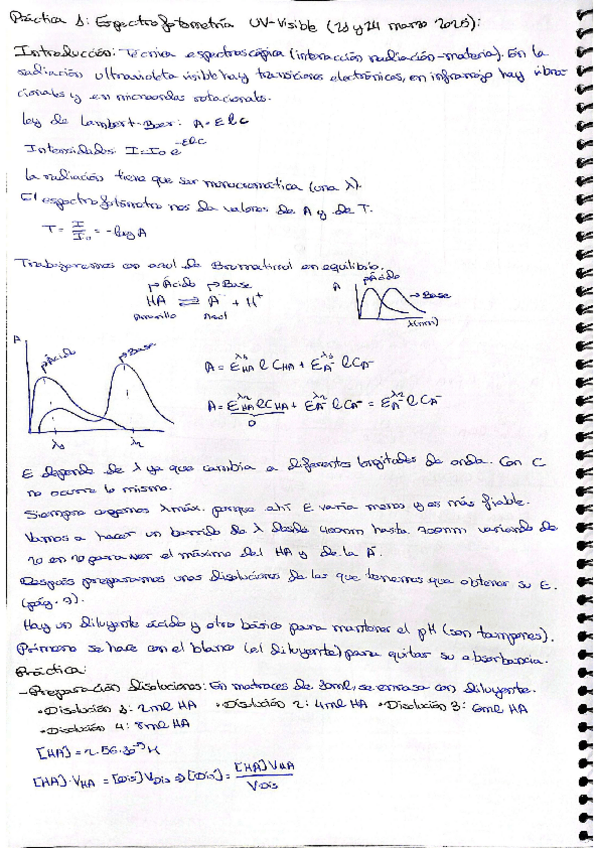 Práctica 1: Espectrofotometría UV-Visible (21 y 24 marzo 2025):
Introducción: Técnica espectroscópica (interacción radiación-materia). En la
radiación ultravioleta visible hay transiciones electrónicas, en infrarrojo hay vibra-
cionales y en microondas rotacionales.
Ley de Lambert-Beer: A = ε l C
Intensidades: I = I₀ e^-εlC
La radiación tiene que ser monocromática (una λ).
El espectrofotómetro nos da valores de A y de T.
T = I/I₀ = -log A
Trabajaremos con azul de Bromotimol en equilibrio.
pÁcido pBase
HA ⇌ A⁻ + H⁺
Amarillo Azul
A pÁcido → Base
λ(nm)
A pÁcido pBase
λ₁ λ₂
A = ε^λ₁ HA l C HA + ε^λ₁ A⁻ l C A⁻
A = ε^λ₂ HA l C HA + ε^λ₂ A⁻ l C A⁻ = ε^λ₂ A⁻ l C A⁻
0
ε depende de λ ya que cambia a diferentes longitudes de onda. Con C
no ocurre lo mismo.
Siempre cogemos λ máx. porque ahí ε varía menos y es más fiable.
Vamos a hacer un barrido de λ desde 400nm hasta 700nm variando de
20 en 20 para ver el máximo del HA y de la A⁻.
Después preparamos unas disoluciones de las que tenemos que obtener su ε.
(pág. 7).
Hay un diluyente ácido y otro básico para mantener el pH (son tampones).
Primero se hace con el blanco (el diluyente) para quitar su absorbancia.
Práctica:
- Preparación disoluciones: En matraces de 10ml, se enrasa con diluyente.
• Disolución 1: 2ml HA • Disolución 2: 4ml HA • Disolución 3: 6ml HA
• Disolución 4: 8ml HA
[HA] = 2.56·10⁻⁴ M
[HA]·V HA = [Dis] V Dis ⇒ [Dis] = [HA] V HA / V Dis